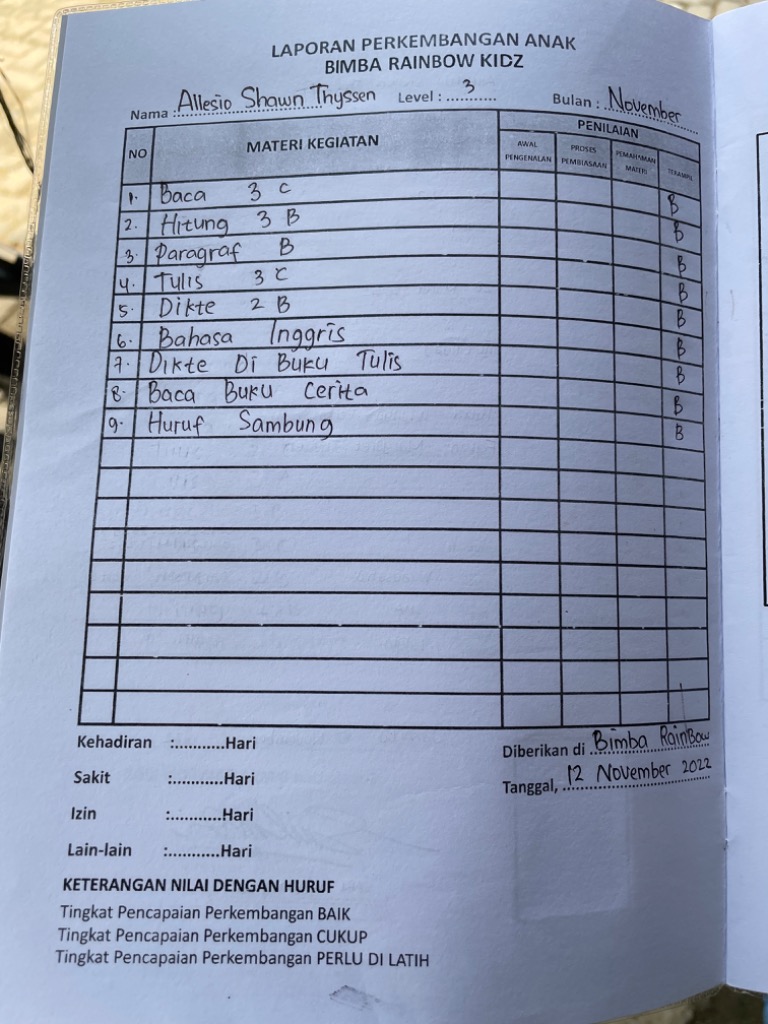 LAPORAN PERKEMBANGAN ANAK
BIMBA RAINBOW KIDZ
Nama Allesio Shawn Thyssen Level : 3 Bulan : November
NO MATERI KEGIATAN PENILAIAN
AWAL PENGENALAN PROSES PEMBIASAAN PEMAHAMAN MATERI TERAMPIL
1. Baca 3 C B
2. Hitung 3 B B
3. Paragraf B B
4. Tulis 3 C B
5. Dikte 2 B B
6. Bahasa Inggris B
7. Dikte Di Buku Tulis B
8. Baca Buku Cerita B
9. Huruf Sambung B
Kehadiran :...........Hari
Sakit :...........Hari
Izin :...........Hari
Lain-lain :...........Hari
Diberikan di Bimba RainBow
Tanggal, 12 November 2022
KETERANGAN NILAI DENGAN HURUF
Tingkat Pencapaian Perkembangan BAIK
Tingkat Pencapaian Perkembangan CUKUP
Tingkat Pencapaian Perkembangan PERLU DI LATIH